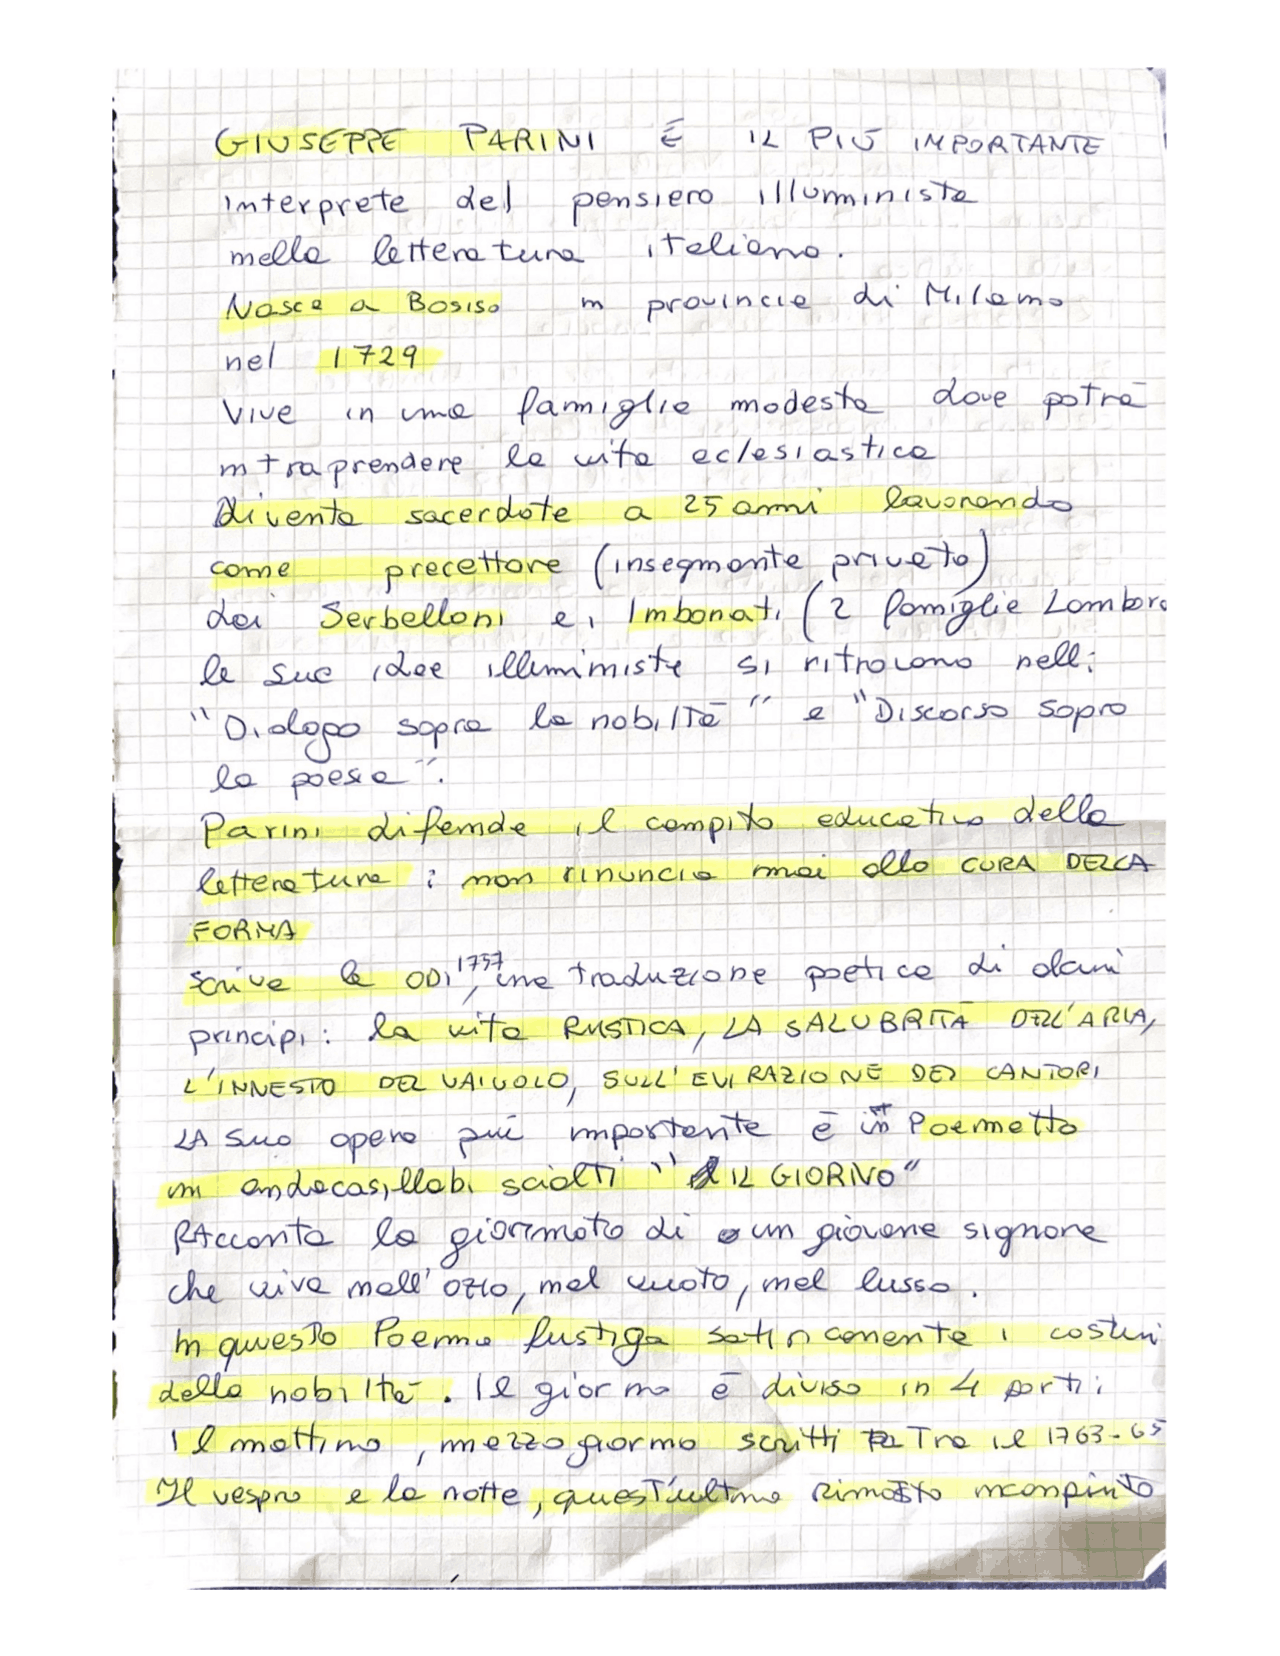 GIUSEPPE PARINI É IL PIÙ IMPORTANTE
interprete del pensiero illuminista
nella letteratura italiana.
Nasce a Bosiso in provincia di Milano
nel 1729
Vive in una famiglia modesta dove potrà
intraprendere la vita eclesiastica
Diventa sacerdote a 25 anni lavorando
come precettore (insegnante privato)
dei Serbelloni e i Imbonati (2 famiglie Lombar
le sue idee illuministe si ritrovano nell:
"Dialogo sopra la nobiltà" e "Discorso sopra
la poesia".
Parini difende il compito educativo della
letteratura: non rinuncia mai alla CURA DELLA
FORMA
scrive le ODI, 1757 una traduzione poetica di alcuni
principi: la vita RUSTICA, LA SALUBRITÀ DELL'ARIA,
L'INNESTO DEL VAIUOLO, SULL'EVIRAZIONE DEI CANTORI
LA sua opera più importante è il Poemetto
in endecasillabi sciolti "IL GIORNO"
RAcconta la giornata di un giovane signore
che vive nell'ozio, nel vuoto, nel lusso.
In questo Poema fustiga satiricamente i costumi
della nobiltà. Il giorno è diviso in 4 parti:
Il mattino, mezzogiorno scritti Tra il 1763-65
Il vespro e la notte, quest'ultima rimasto incompiuto